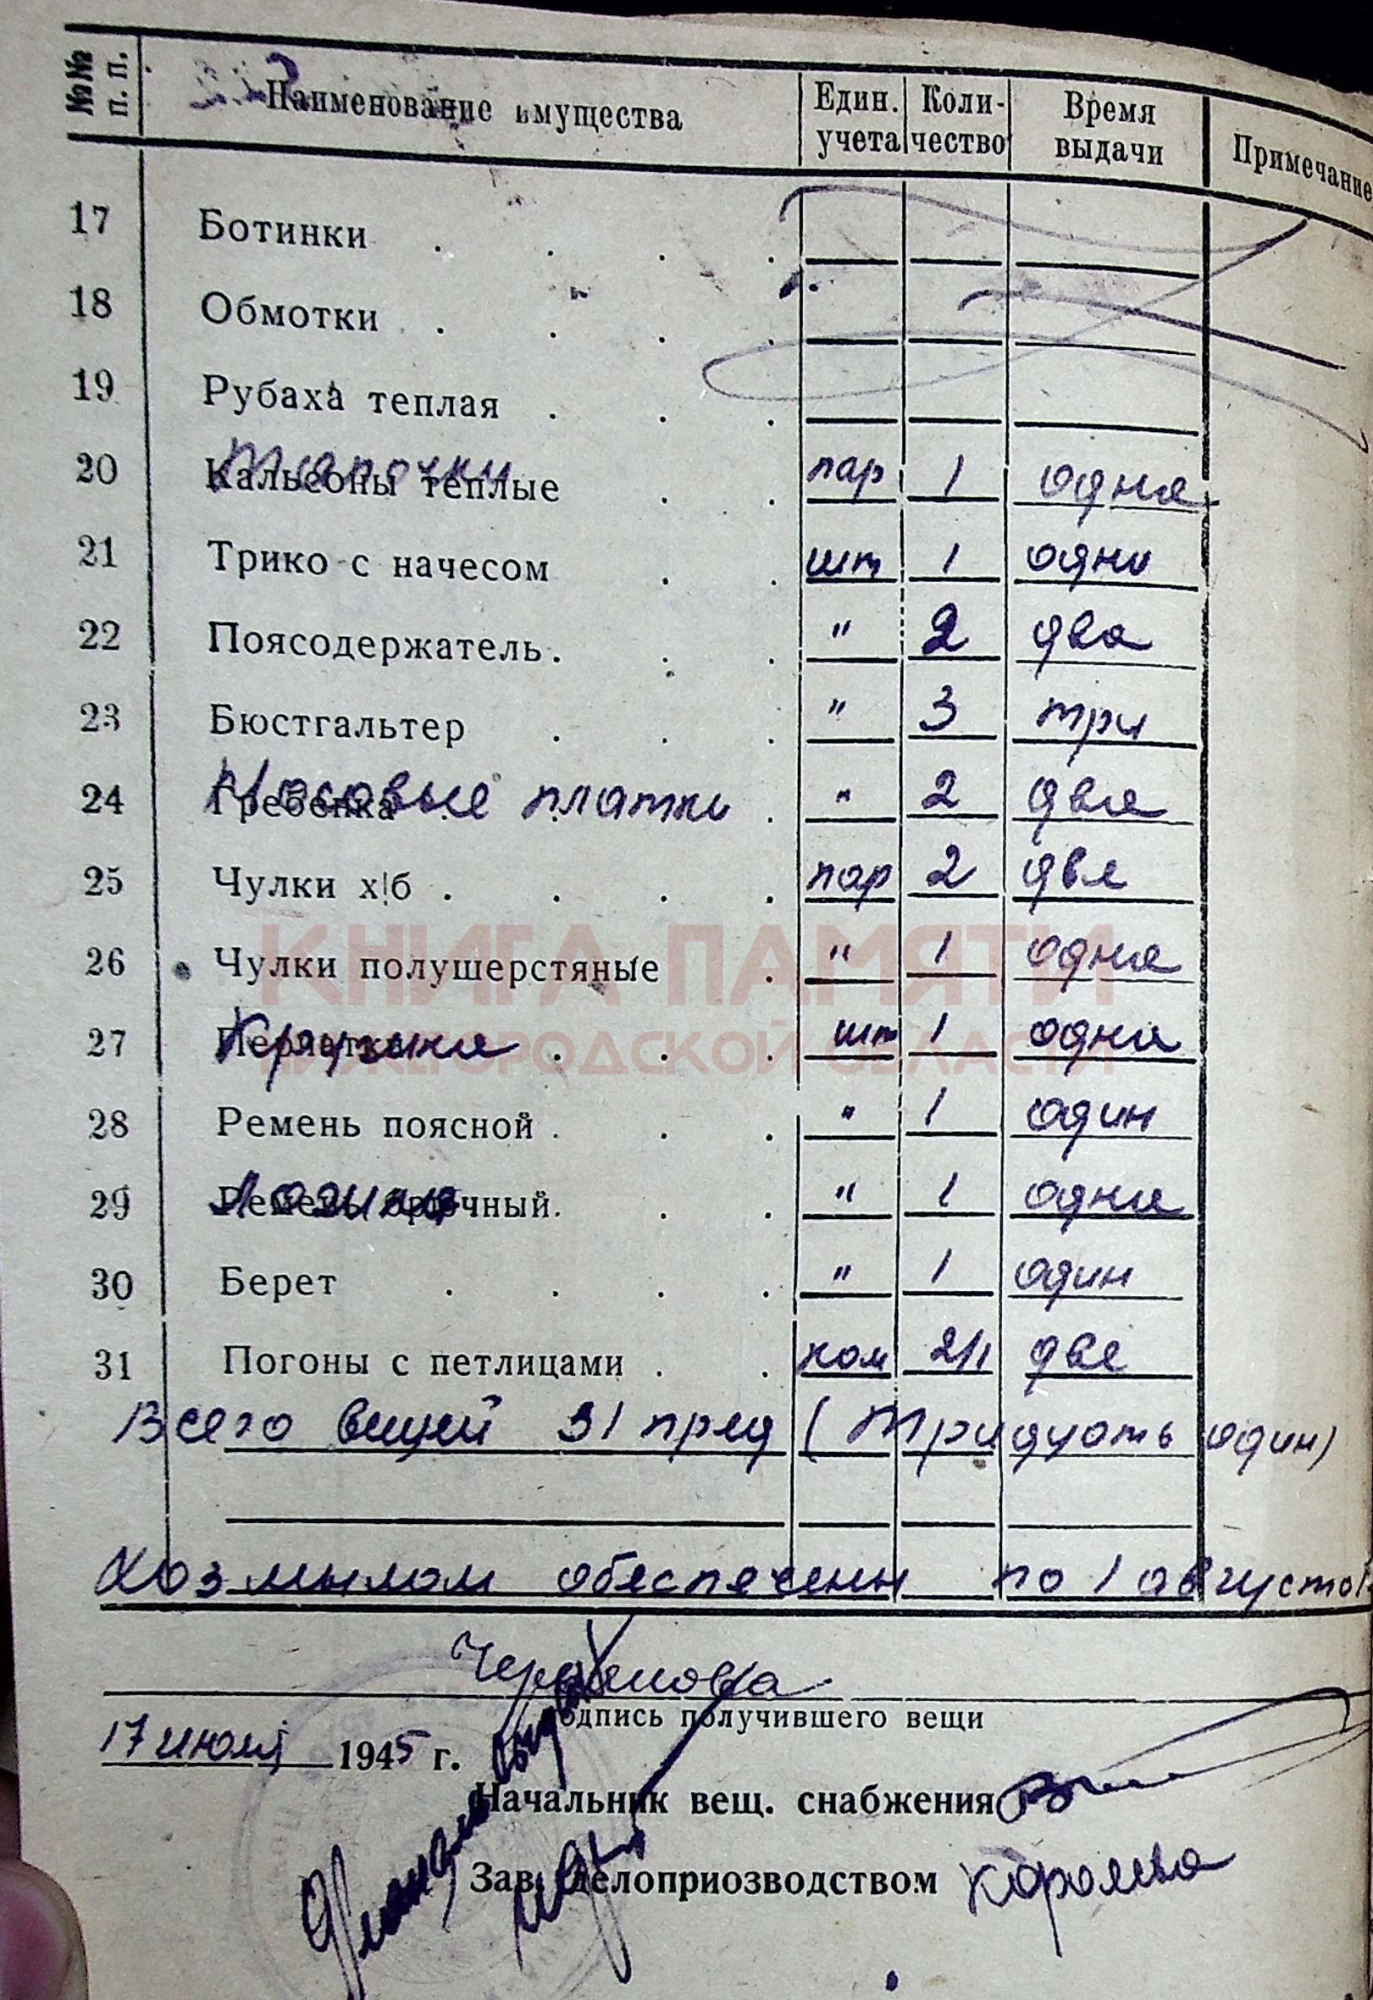 №№ п. п. Наименование имущества Един. учета Коли-чество Время выдачи Примечание
17 Ботинки
18 Обмотки
19 Рубаха теплая
20 Кальсоны теплые Тапочки пар 1 одна
21 Трико с начесом шт 1 одни
22 Поясодержатель " 2 два
23 Бюстгальтер " 3 три
24 Гребенка Носовые платки " 2 два
25 Чулки х!б пар 2 две
26 Чулки полушерстяные " 1 одна
КНИГА ПАМЯТИ
27 Перчатки шт 1 одна
НИЖЕГОРОДСКОЙ ОБЛАСТИ
28 Ремень поясной " 1 один
29 Ремень брючный " 1 одна
30 Берет " 1 один
31 Погоны с петлицами ком 2/1 две
Всего вещей 31 пред (Тридцать один)
Хоз мылом обеспечены по 1 августа
подпись получившего вещи
17 июля 1945 г.
Начальник вещ. снабжения
Зав. делоприозводством Королева